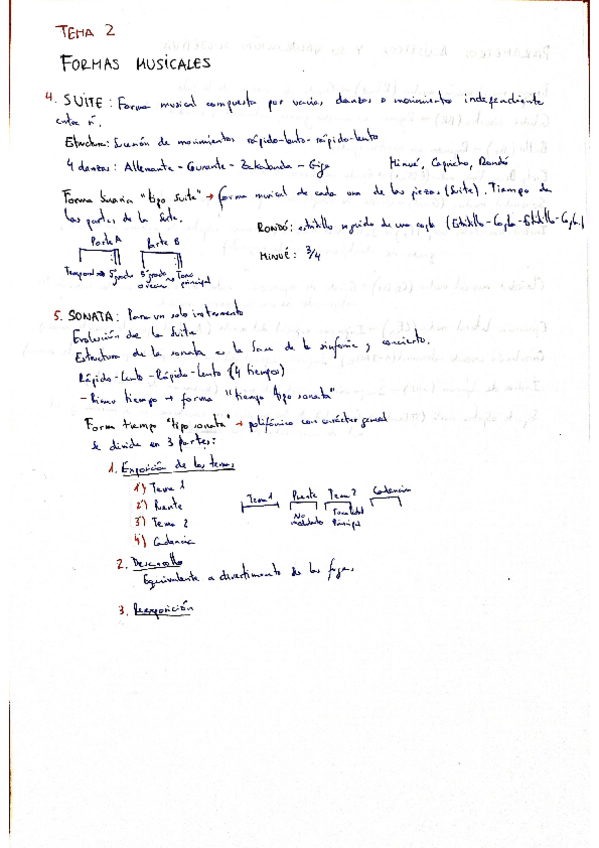 TEMA 2
FORMAS MUSICALES
4. SUITE: Forma musical compuesta por varias danzas o movimientos independiente
entre sí.
Estructura: Sucesión de movimientos rápido-lento-rápido-lento
4 danzas: Allemante - Courante - Zarabanda - Giga Minué, Capricho, Rondó
Forma binaria "tipo suite" → forma musical de cada una de las piezas (Suite). Tiempo de
las partes de la Suite.
RONDÓ: estribillo seguido de una copla (Estribillo-Copla-Estribillo-Copla)
Parte A Parte B
MINUÉ: 3/4
5º grado 5º grado Tono
principal
5. SONATA: Para un solo instrumento
Evolución de la Suite
Estructura de la sonata es la base de la sinfonía y concierto.
Rápido-Lento-Rápido-Lento (4 tiempos)
- Primer tiempo → forma "tiempo tipo sonata"
Forma tiempo "tipo sonata" → polifónico con carácter general
Se divide en 3 partes:
1. Exposición de los temas
1') Tema 1
2') Puente
3') Tema 2
4') Cadencia
Tema 1 Puente Tema 2 Cadencia
No Tonalidad
modulado Principal
2. Desarrollo
Equivalente a divertimento de las fugas
3. Reexposición